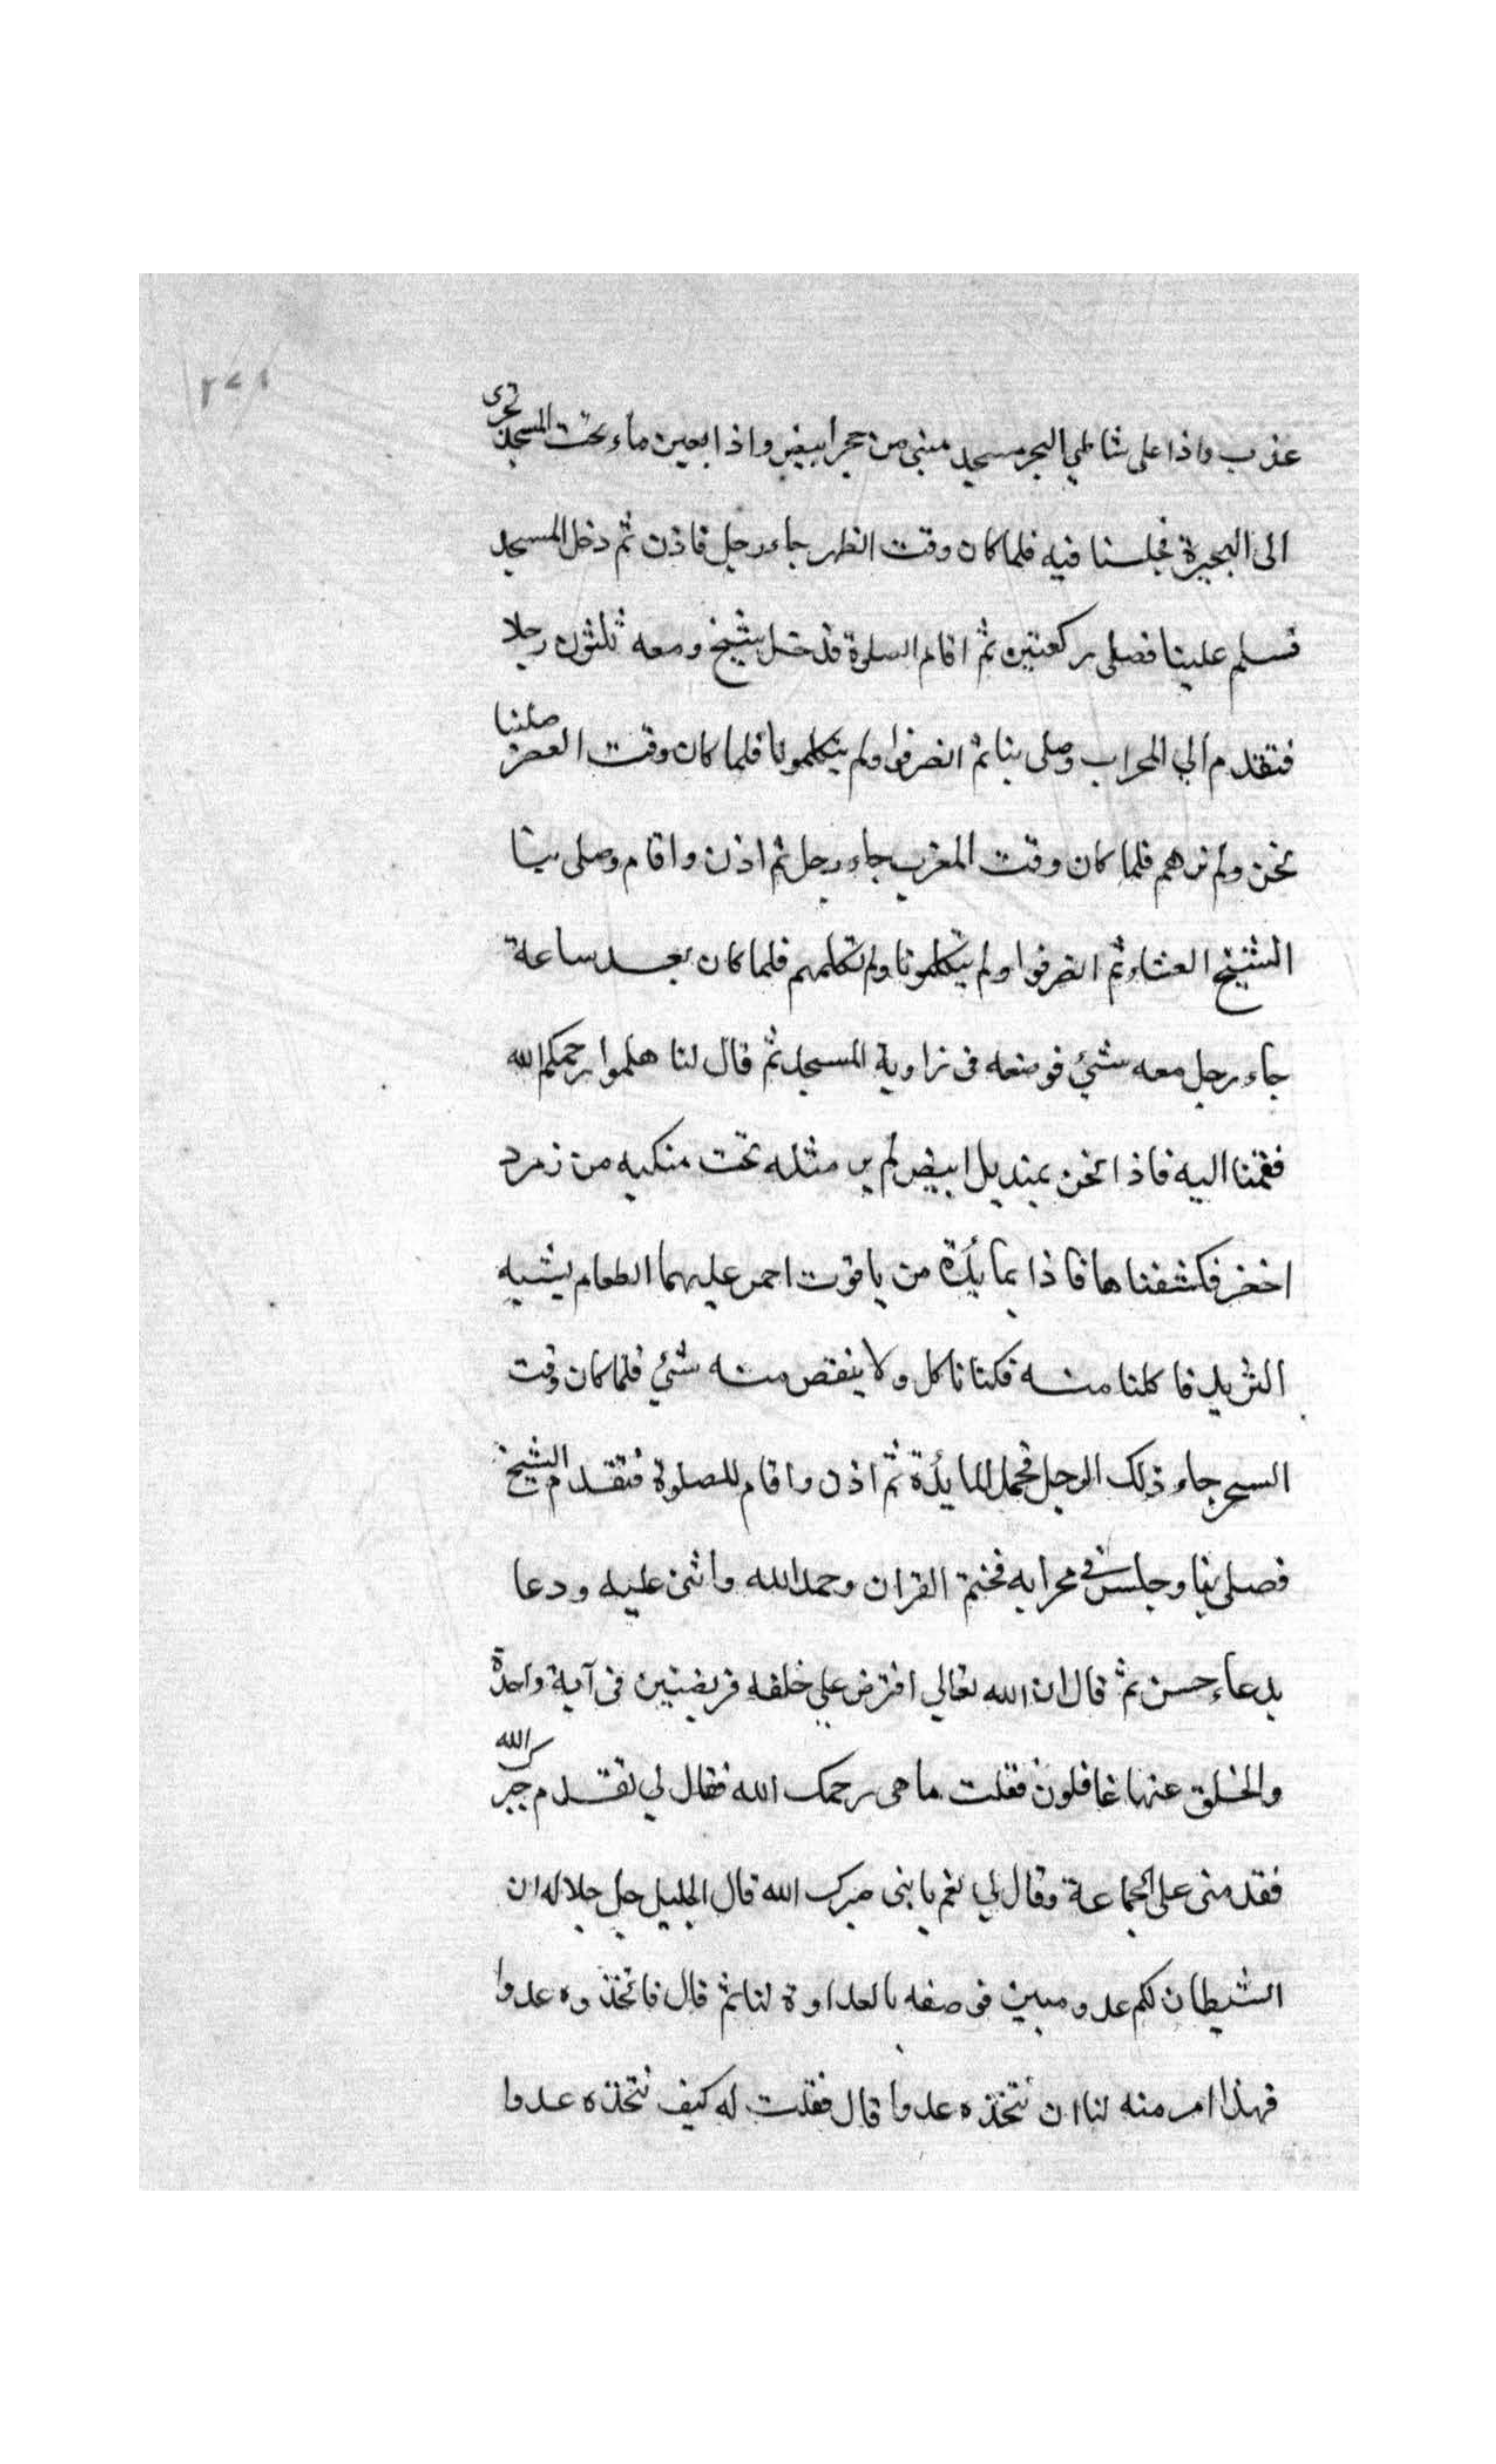 عذب واذا على شاطي البحر مسجد مبني من حجر ابيض واذا بعين ماء تحت المسجد تجرى
الى البحيرة فجلسنا فيه فلما كان وقت الظهر جاء رجل فاذن ثم دخل المسجد
فسلم علينا فصلى ركعتين ثم اقام الصلوة فدخل شيخ ومعه ثلثون رجلا
فتقدم الي المحراب وصلى بنا ثم انصرفوا ولم يتكلمونا فلما كان وقت العصر صلينا
نحن ولم نرهم فلما كان وقت المغرب جاء رجل ثم اذن واقام وصلى بنا
الشيخ العشاء ثم انصرفوا ولم يتكلمونا ولم نكلمهم فلما كان بعد ساعة
جاء رجل معه شئ فوضعه فى زاوية المسجد ثم قال لنا هلموا رحمكم الله
فقمنا اليه فاذا نحن بمنديل ابيض لم ير مثله تحت منكبه من زمرد
اخضر فكشفناها فاذا بمائدة من ياقوت احمر عليهما الطعام يشبه
الثريد فاكلنا منه فكنا ناكل ولا ينقص منه شئ فلما كان وقت
السحر جاء ذلك الرجل فحمل المائدة ثم اذن واقام للصلوة فتقدم الشيخ
فصلى بنا وجلس في محرابه فختم القران وحمد الله واثنى عليه ودعا
بدعاء حسن ثم قال ان الله تعالي افترض علي خلقه فريضتين فى آية واحدة
والخلق عنها غافلون فقلت ما هى رحمك الله فقال لي تقدم جبرك الله
فقدمنى على الجماعة وقال لي نعم يا بنى جبرك الله قال الجليل جل جلاله ان
الشيطان لكم عدو مبين فوصفه بالعداوة لنا ثم قال فاتخذوه عدوا
فهذا امر منه لنا ان نتخذه عدوا قال فقلت له كيف نتخذه عدوا